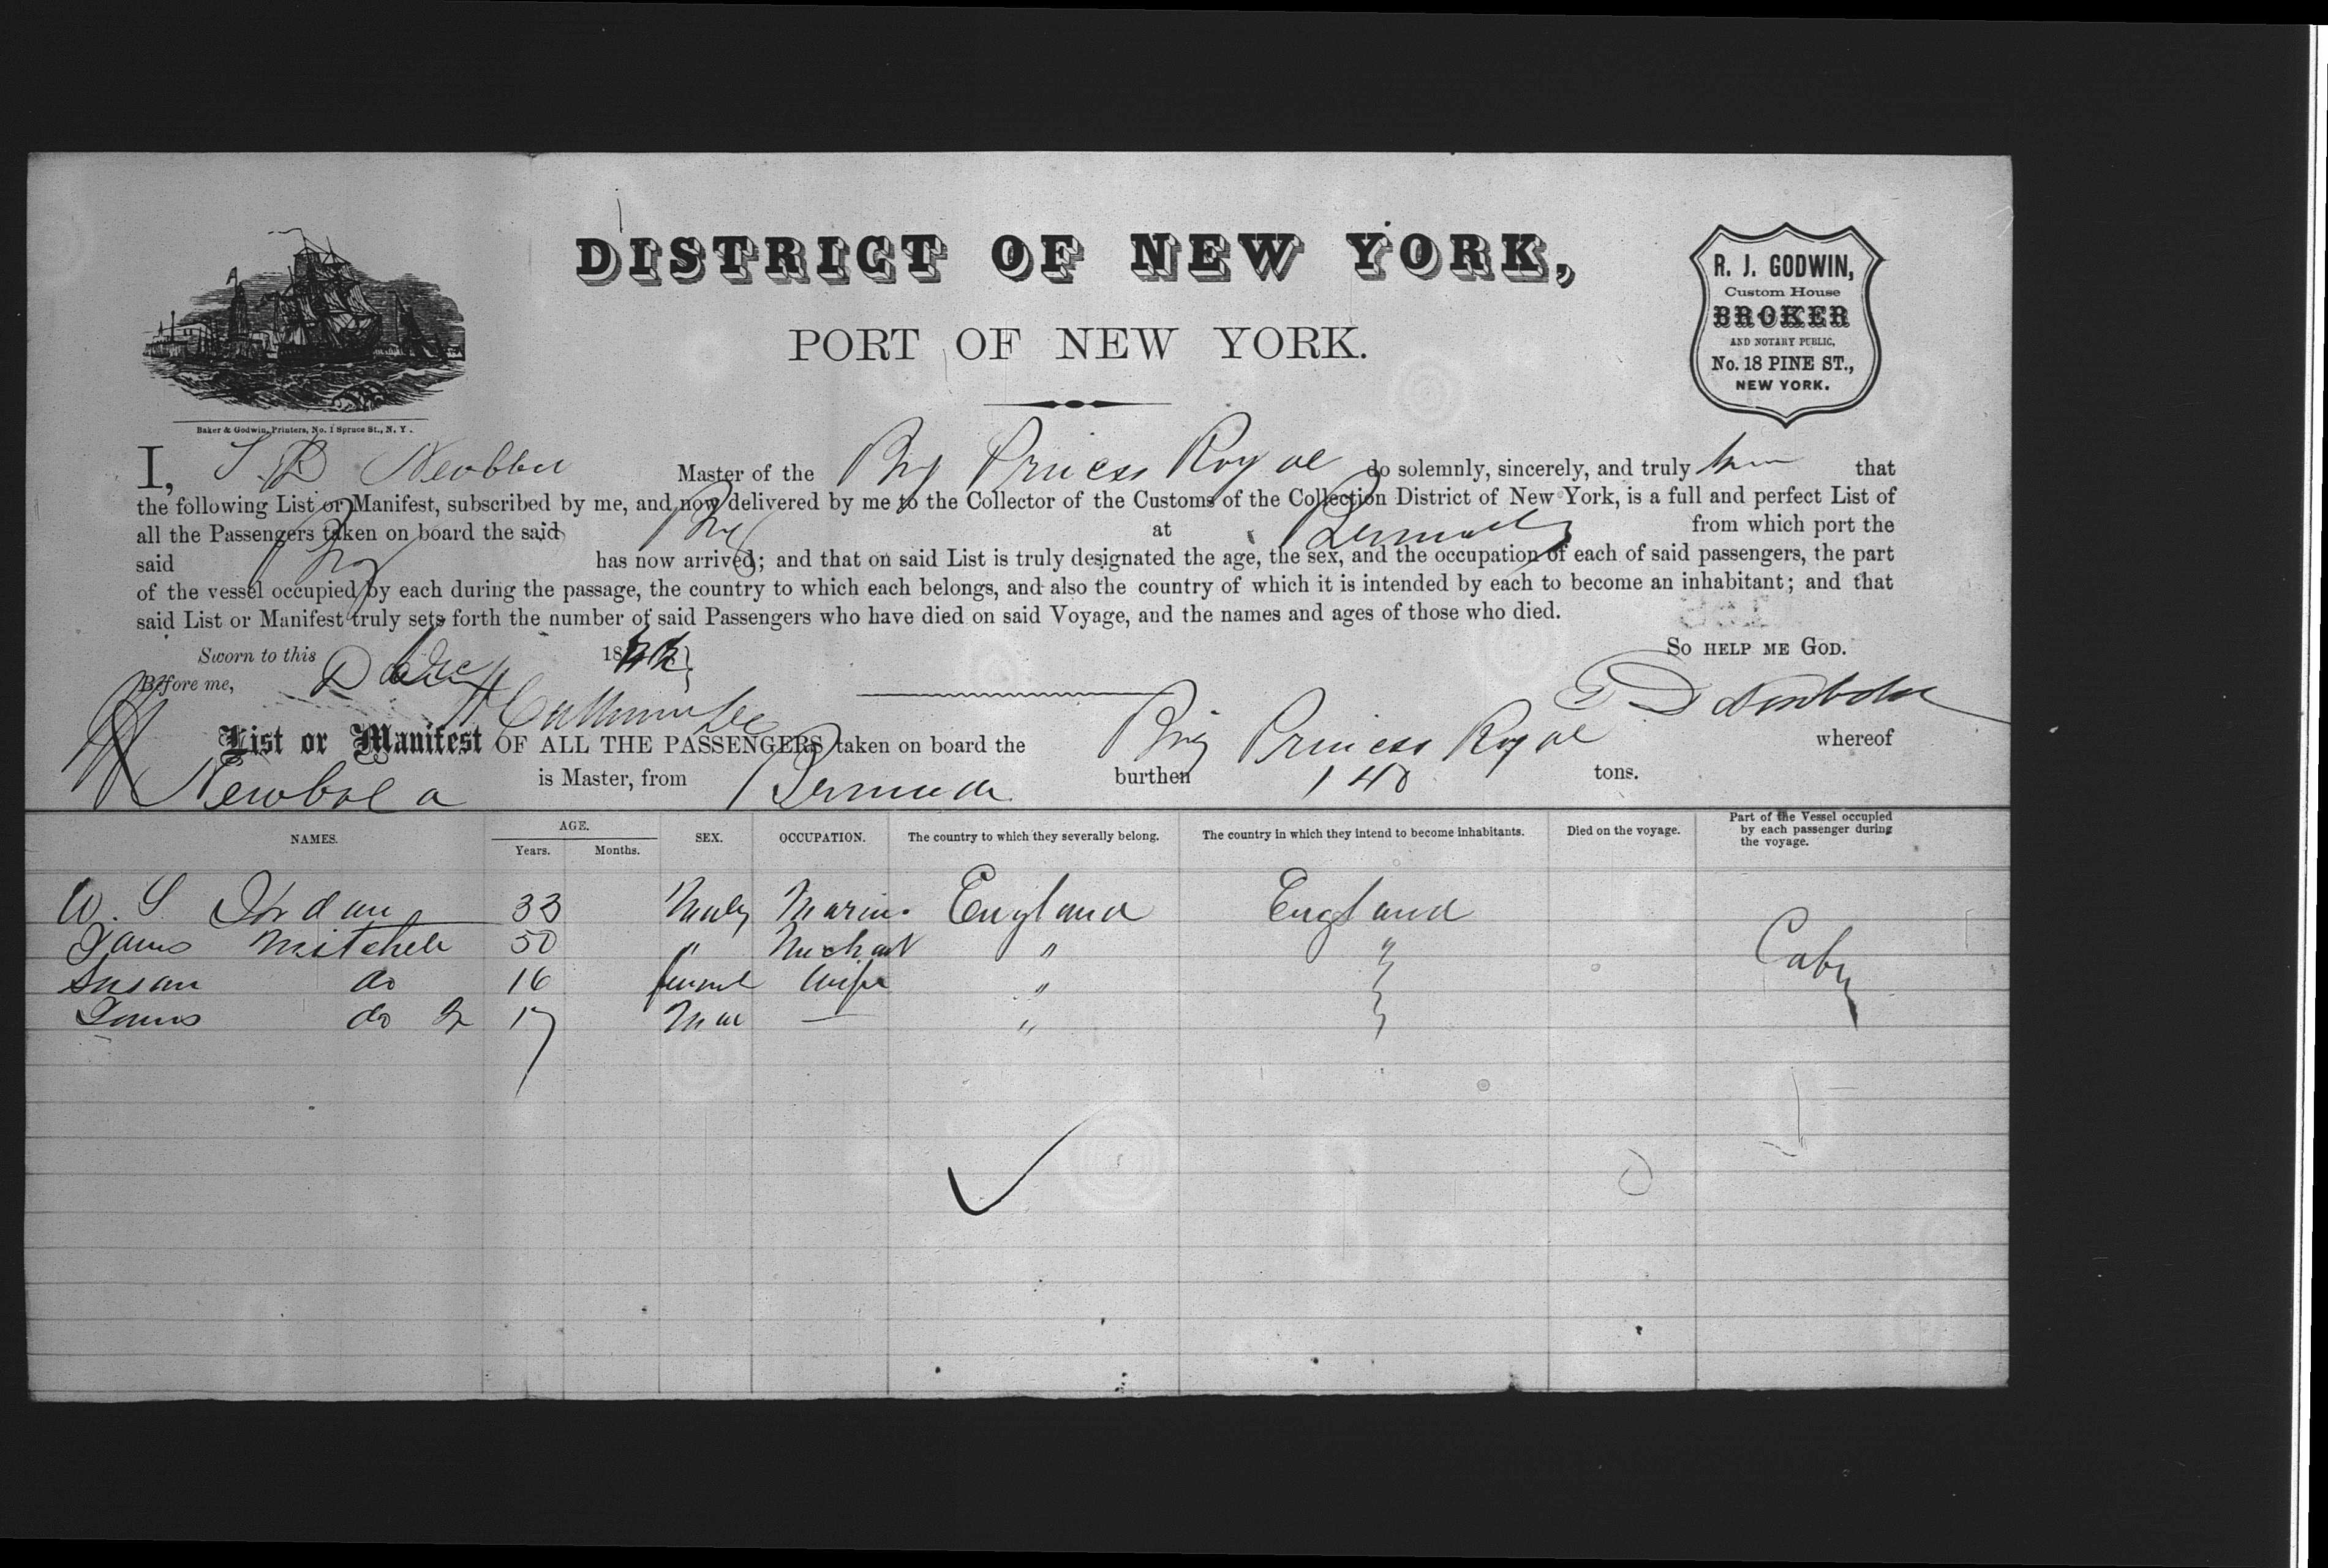 DISTRICT OF NEW YORK,
PORT OF NEW YORK.
R. J. GODWIN,
Custom House
BROKER
AND NOTARY PUBLIC,
No. 18 PINE ST.,
NEW YORK.
Baker & Godwin, Printers, No. 1 Spruce St., N. Y.
I, Master of the Brig Princess Royal do solemnly, sincerely, and truly that
the following List or Manifest, subscribed by me, and now delivered by me to the Collector of the Customs of the Collection District of New York, is a full and perfect List of
all the Passengers taken on board the said Brig at Bermuda from which port the
said Brig has now arrived; and that on said List is truly designated the age, the sex, and the occupation of each of said passengers, the part
of the vessel occupied by each during the passage, the country to which each belongs, and also the country of which it is intended by each to become an inhabitant; and that
said List or Manifest truly sets forth the number of said Passengers who have died on said Voyage, and the names and ages of those who died.
Sworn to this 18
So HELP ME GOD.
Before me,
List or Manifest OF ALL THE PASSENGERS taken on board the Brig Princess Royal whereof
is Master, from Bermuda burthen 140 tons.
NAMES. AGE. Years. Months. SEX. OCCUPATION. The country to which they severally belong. The country in which they intend to become inhabitants. Died on the voyage. Part of the Vessel occupied by each passenger during the voyage.
W. S Jordan 33 England England
James Mitchell 50 " " "
Susan do 16 Wife " "
James do 17 — " "